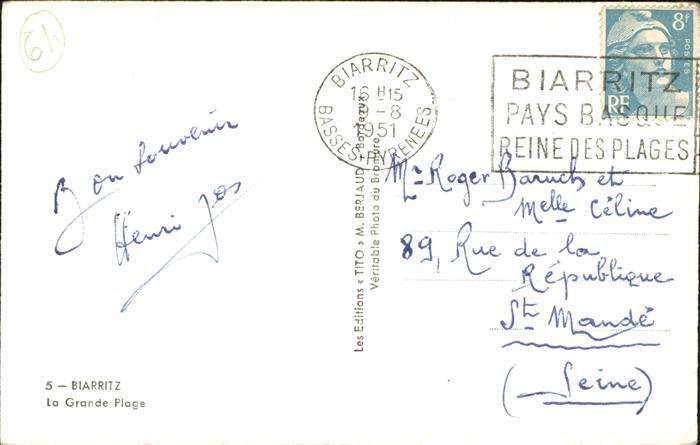 64
Bon souvenir
Henri Jos
5 — BIARRITZ
La Grande Plage
Les Editions « TITO » M. BERJAUD - Bordeaux
Véritable Photo au Bromure
BIARRITZ
16 H15
9-8
1951
BASSES-PYRENEES
8F
POSTES
RF
BIARRITZ
PAYS BASQUE
REINE DES PLAGES
Mr Roger Baruch et
Melle Céline
89, Rue de la
République
St Mandé
(Seine)